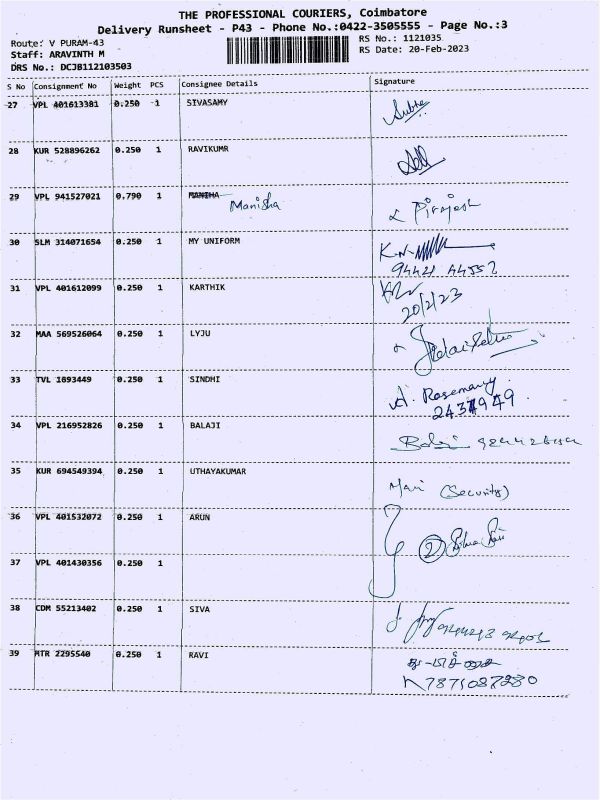 THE PROFESSIONAL COURIERS, Coimbatore
Delivery Runsheet - P43 - Phone No.:0422-3505555 - Page No.:3
Route: V PURAM-43
RS No.: 1121035
Staff: ARAVINTH M
RS Date: 20-Feb-2023
DRS No.: DCJB112103503
S No Consignment No Weight PCS Consignee Details Signature
27 VPL 401613381 0.250 1 SIVASAMY
28 KUR 528896262 0.250 1 RAVIKUMR
29 VPL 941527021 0.790 1 MANIHA Manisha
30 SLM 314071654 0.250 1 MY UNIFORM
94421 44552
31 VPL 401612099 0.250 1 KARTHIK
20/2/23
32 MAA 569526064 0.250 1 LYJU
33 TVL 1893449 0.250 1 SINDHI A. Rosemary
34 VPL 216952826 0.250 1 BALAJI
35 KUR 694549394 0.250 1 UTHAYAKUMAR
Mari (Security)
36 VPL 401532072 0.250 1 ARUN
37 VPL 401430356 0.250 1
38 CDM 55213402 0.250 1 SIVA
39 MTR 2295540 0.250 1 RAVI
7871087280